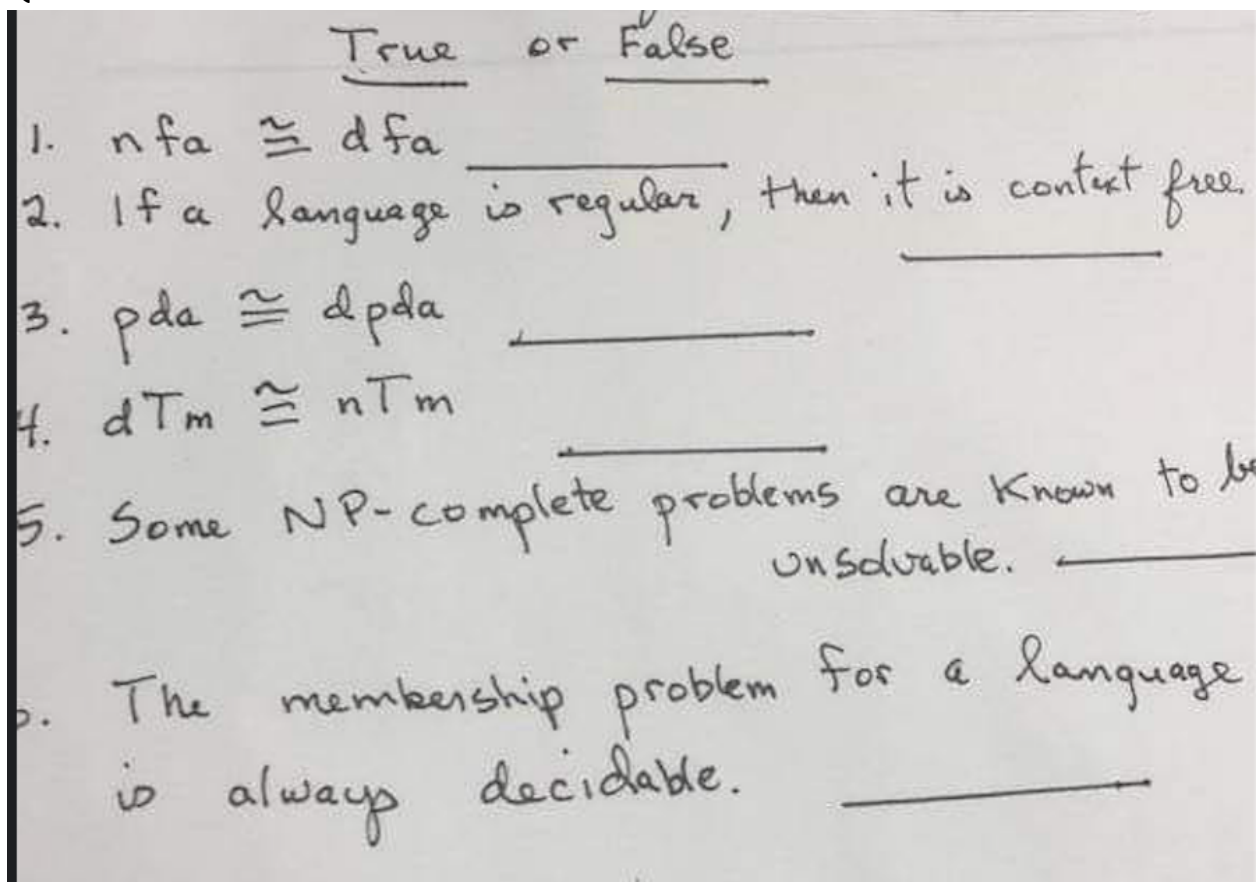 True or False
1. nfa ≅ dfa
2. If a language is regular, then it is context free.
3. pda ≅ dpda
4. dTm ≅ nTm
5. Some NP-complete problems are known to be
unsolvable.
The membership problem for a language
is always decidable.